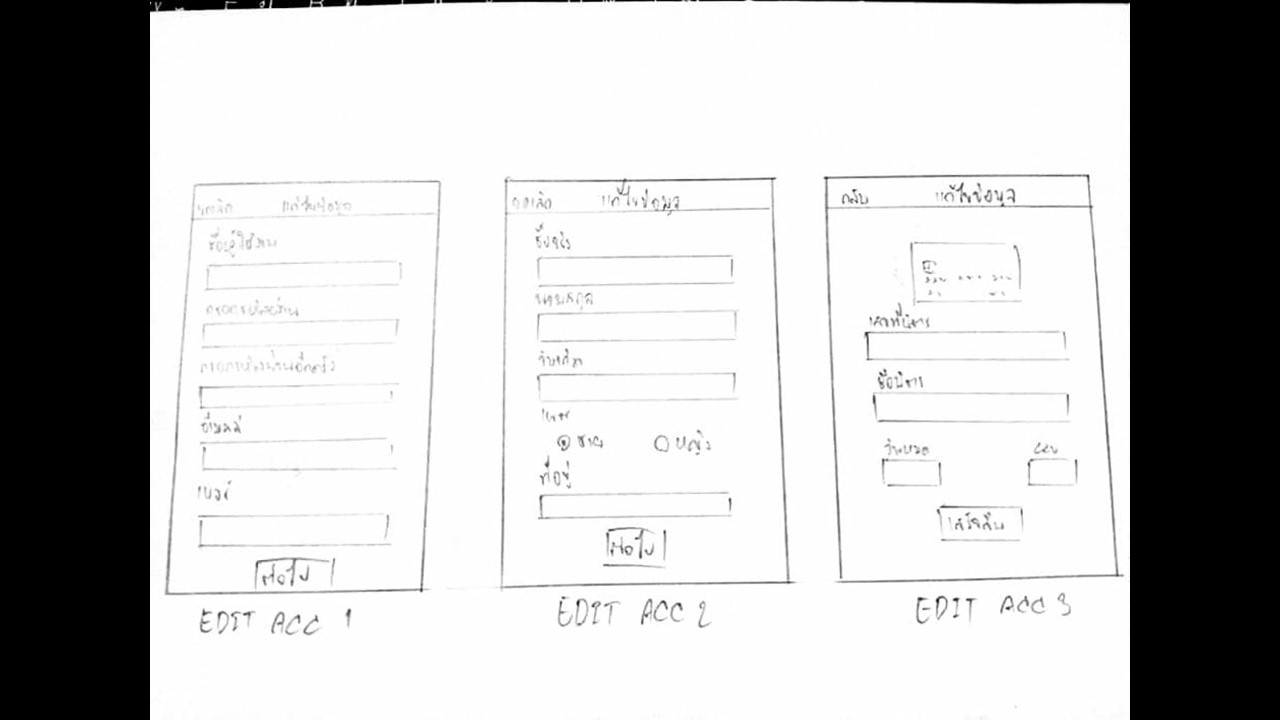 ยกเลิก แก้ไขข้อมูล
ชื่อผู้ใช้งาน
กรอกรหัสผ่าน
กรอกรหัสผ่านอีกครั้ง
อีเมลล์
เบอร์
ต่อไป
EDIT ACC 1
ยกเลิก แก้ไขข้อมูล
ชื่อจริง
นามสกุล
วันเกิด
เพศ
ชาย หญิง
ที่อยู่
ต่อไป
EDIT ACC 2
กลับ แก้ไขข้อมูล
เลขที่บัตร
ชื่อบัตร
วันหมด
เสร็จสิ้น
EDIT ACC 3